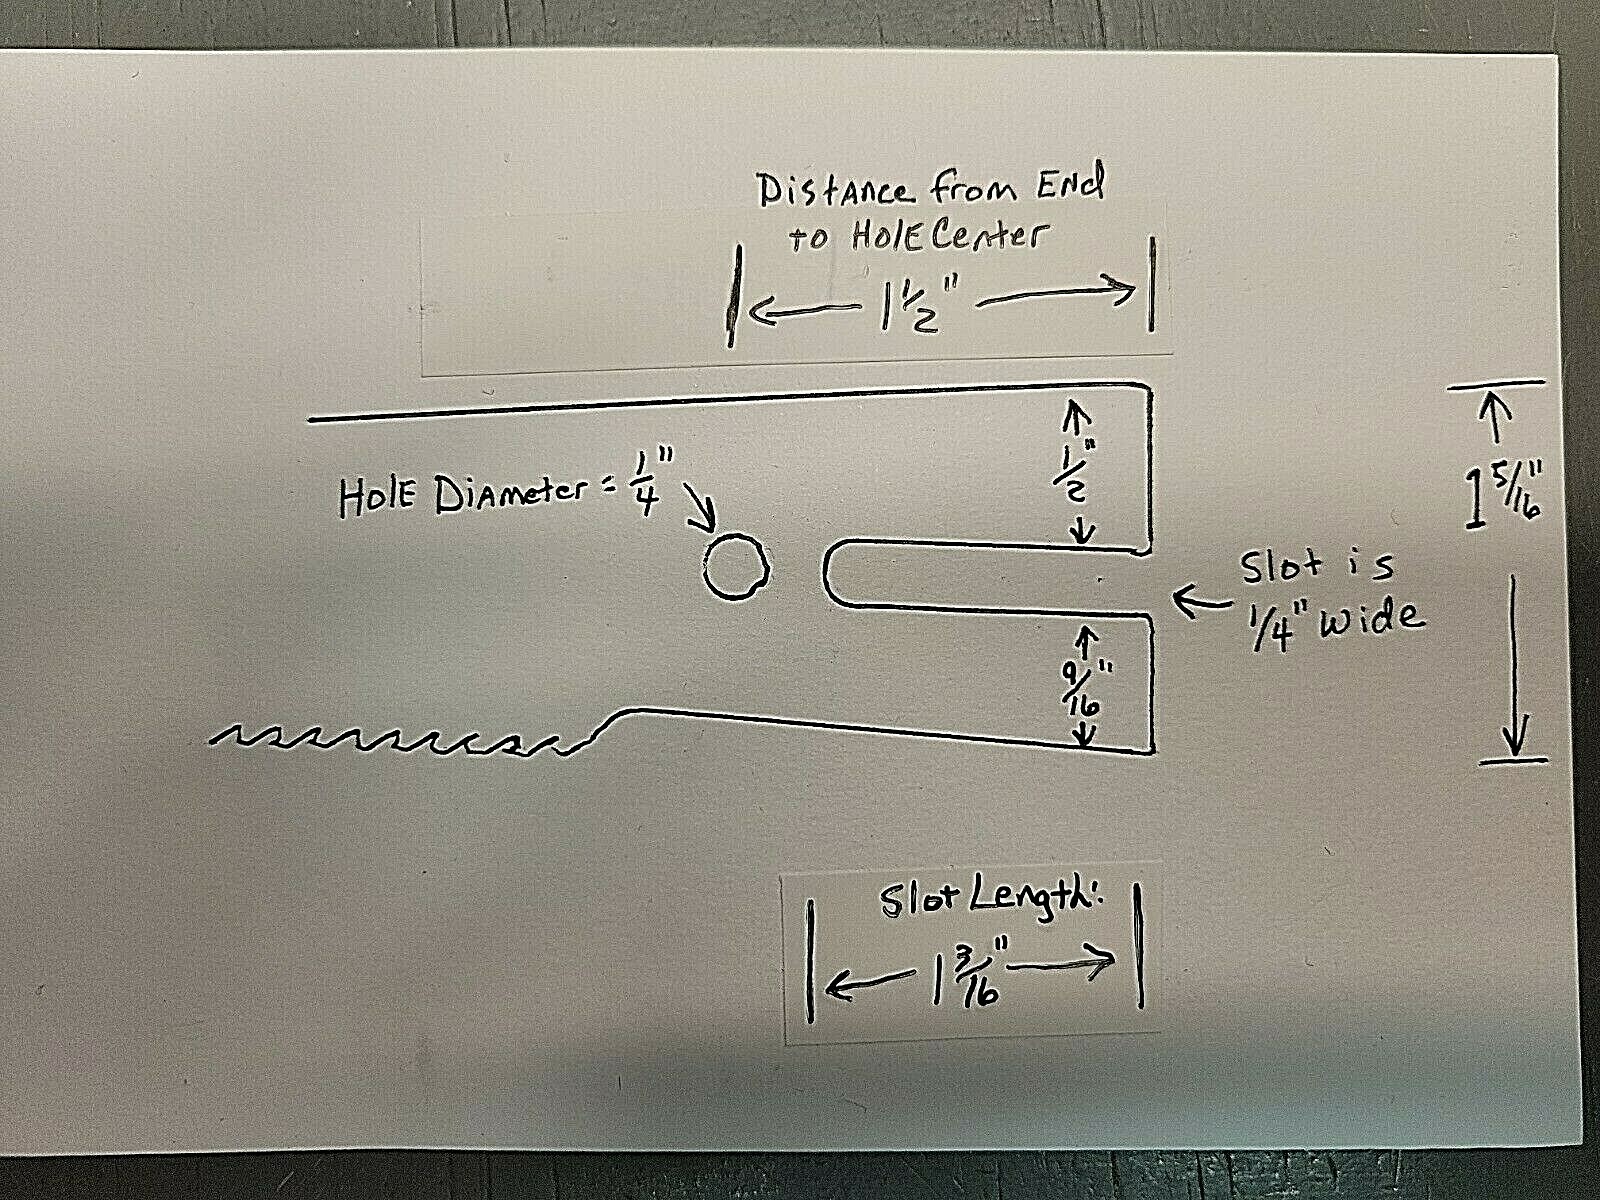 Distance from End
to Hole Center
1 1/2"
Hole Diameter = 1/4"
1/2"
1 5/16"
Slot is
1/4" wide
9/16"
Slot Length:
1 3/16"